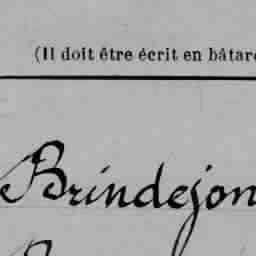 (Il doit être écrit en bâtar
Brindejon